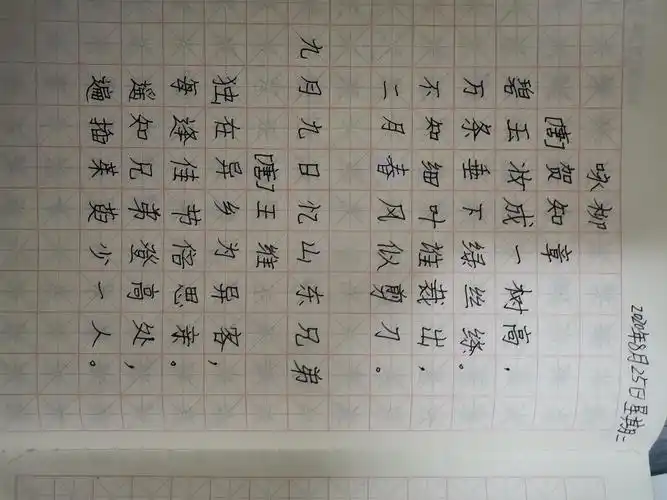 2020年8月25日 星期二
咏柳
[唐]贺知章
碧玉妆成一树高,
万条垂下绿丝绦。
不知细叶谁裁出,
二月春风似剪刀。
九月九日忆山东兄弟
[唐]王维
独在异乡为异客,
每逢佳节倍思亲。
遥知兄弟登高处,
遍插茱萸少一人。